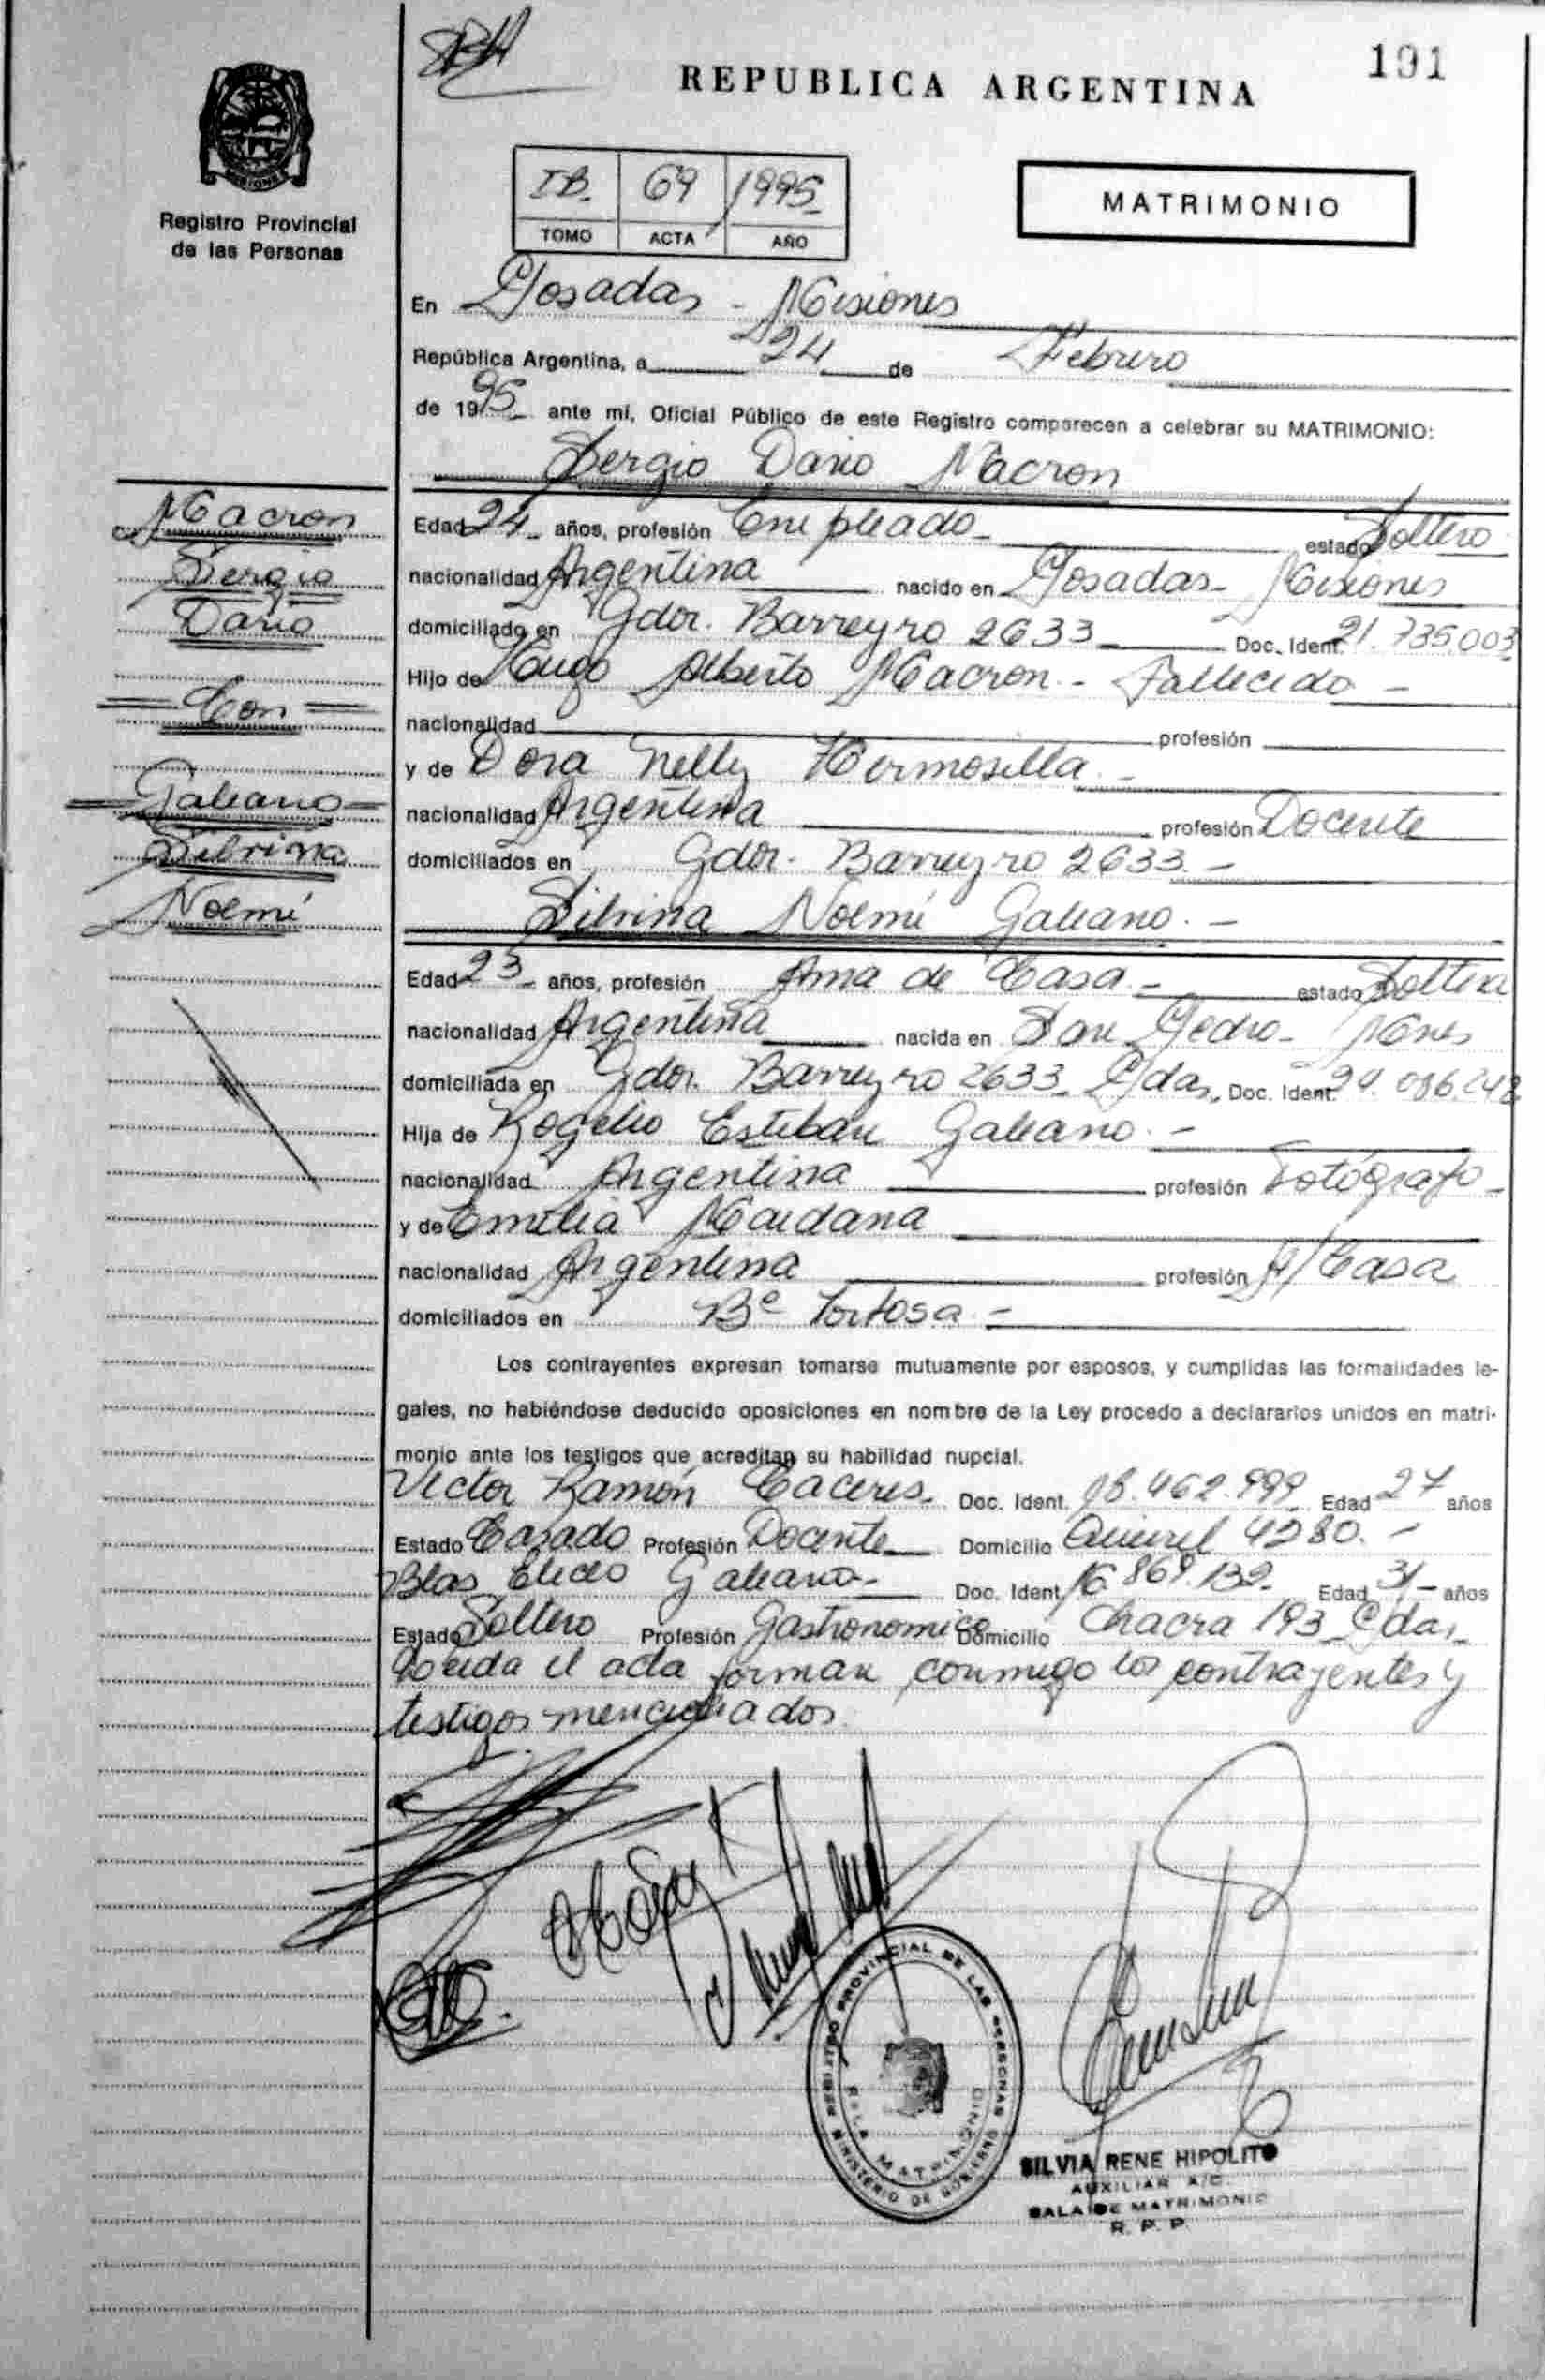 191
REPUBLICA ARGENTINA
Registro Provincial
de las Personas
69 1995
TOMO ACTA AÑO
MATRIMONIO
En Posadas - Misiones
República Argentina, a 24 de Febrero
de 1995 ante mi, Oficial Público de este Registro comparecen a celebrar su MATRIMONIO:
Sergio Dario Macron
Macron
Sergio
Dario
Con
Galeano
Silvina
Noemí
Edad 24 años, profesión Empleado estado Soltero
nacionalidad Argentina nacido en Posadas - Misiones
domiciliado en Gdor. Barreyro 2633 Doc. Ident. 21.735.003
Hijo de Hugo Alberto Macron - Fallecido -
nacionalidad profesión
y de Dora Nelly Hermosilla. -
nacionalidad Argentina profesión Docente
domiciliados en Gdor. Barreyro 2633. -
Silvina Noemí Galeano. -
Edad 23 años, profesión Ama de Casa. - estado Soltera
nacionalidad Argentina nacida en San Pedro - Mnes
domiciliada en Gdor. Barreyro 2633 - Pdas. Doc. Ident.
Hija de Rogelio Esteban Galeano. -
nacionalidad Argentina profesión Fotógrafo -
y de Emilia Maidana
nacionalidad Argentina profesión A/Casa
domiciliados en Bº Tortosa. -
Los contrayentes expresan tomarse mutuamente por esposos, y cumplidas las formalidades le-
gales, no habiéndose deducido oposiciones en nombre de la Ley procedo a declararlos unidos en matri-
monio ante los testigos que acreditan su habilidad nupcial.
Victor Ramón Caceres - Doc. Ident. 18.462.999 Edad 27 años
Estado Casado Profesión Docente Domicilio 4280. -
Blas Galeano - Doc. Ident. 16.869.132 - Edad 31 - años
Estado Soltero Profesión Gastronomico Domicilio Chacra 193 - Pdas -
el acta forman conmigo los contrayentes y
testigos mencionados.
REGISTRO PROVINCIAL DE LAS PERSONAS
SALA MATRIMONIO
MINISTERIO DE GOBIERNO
SILVIA RENE HIPOLITO
AUXILIAR A/C.
SALA DE MATRIMONIO
R. P. P.